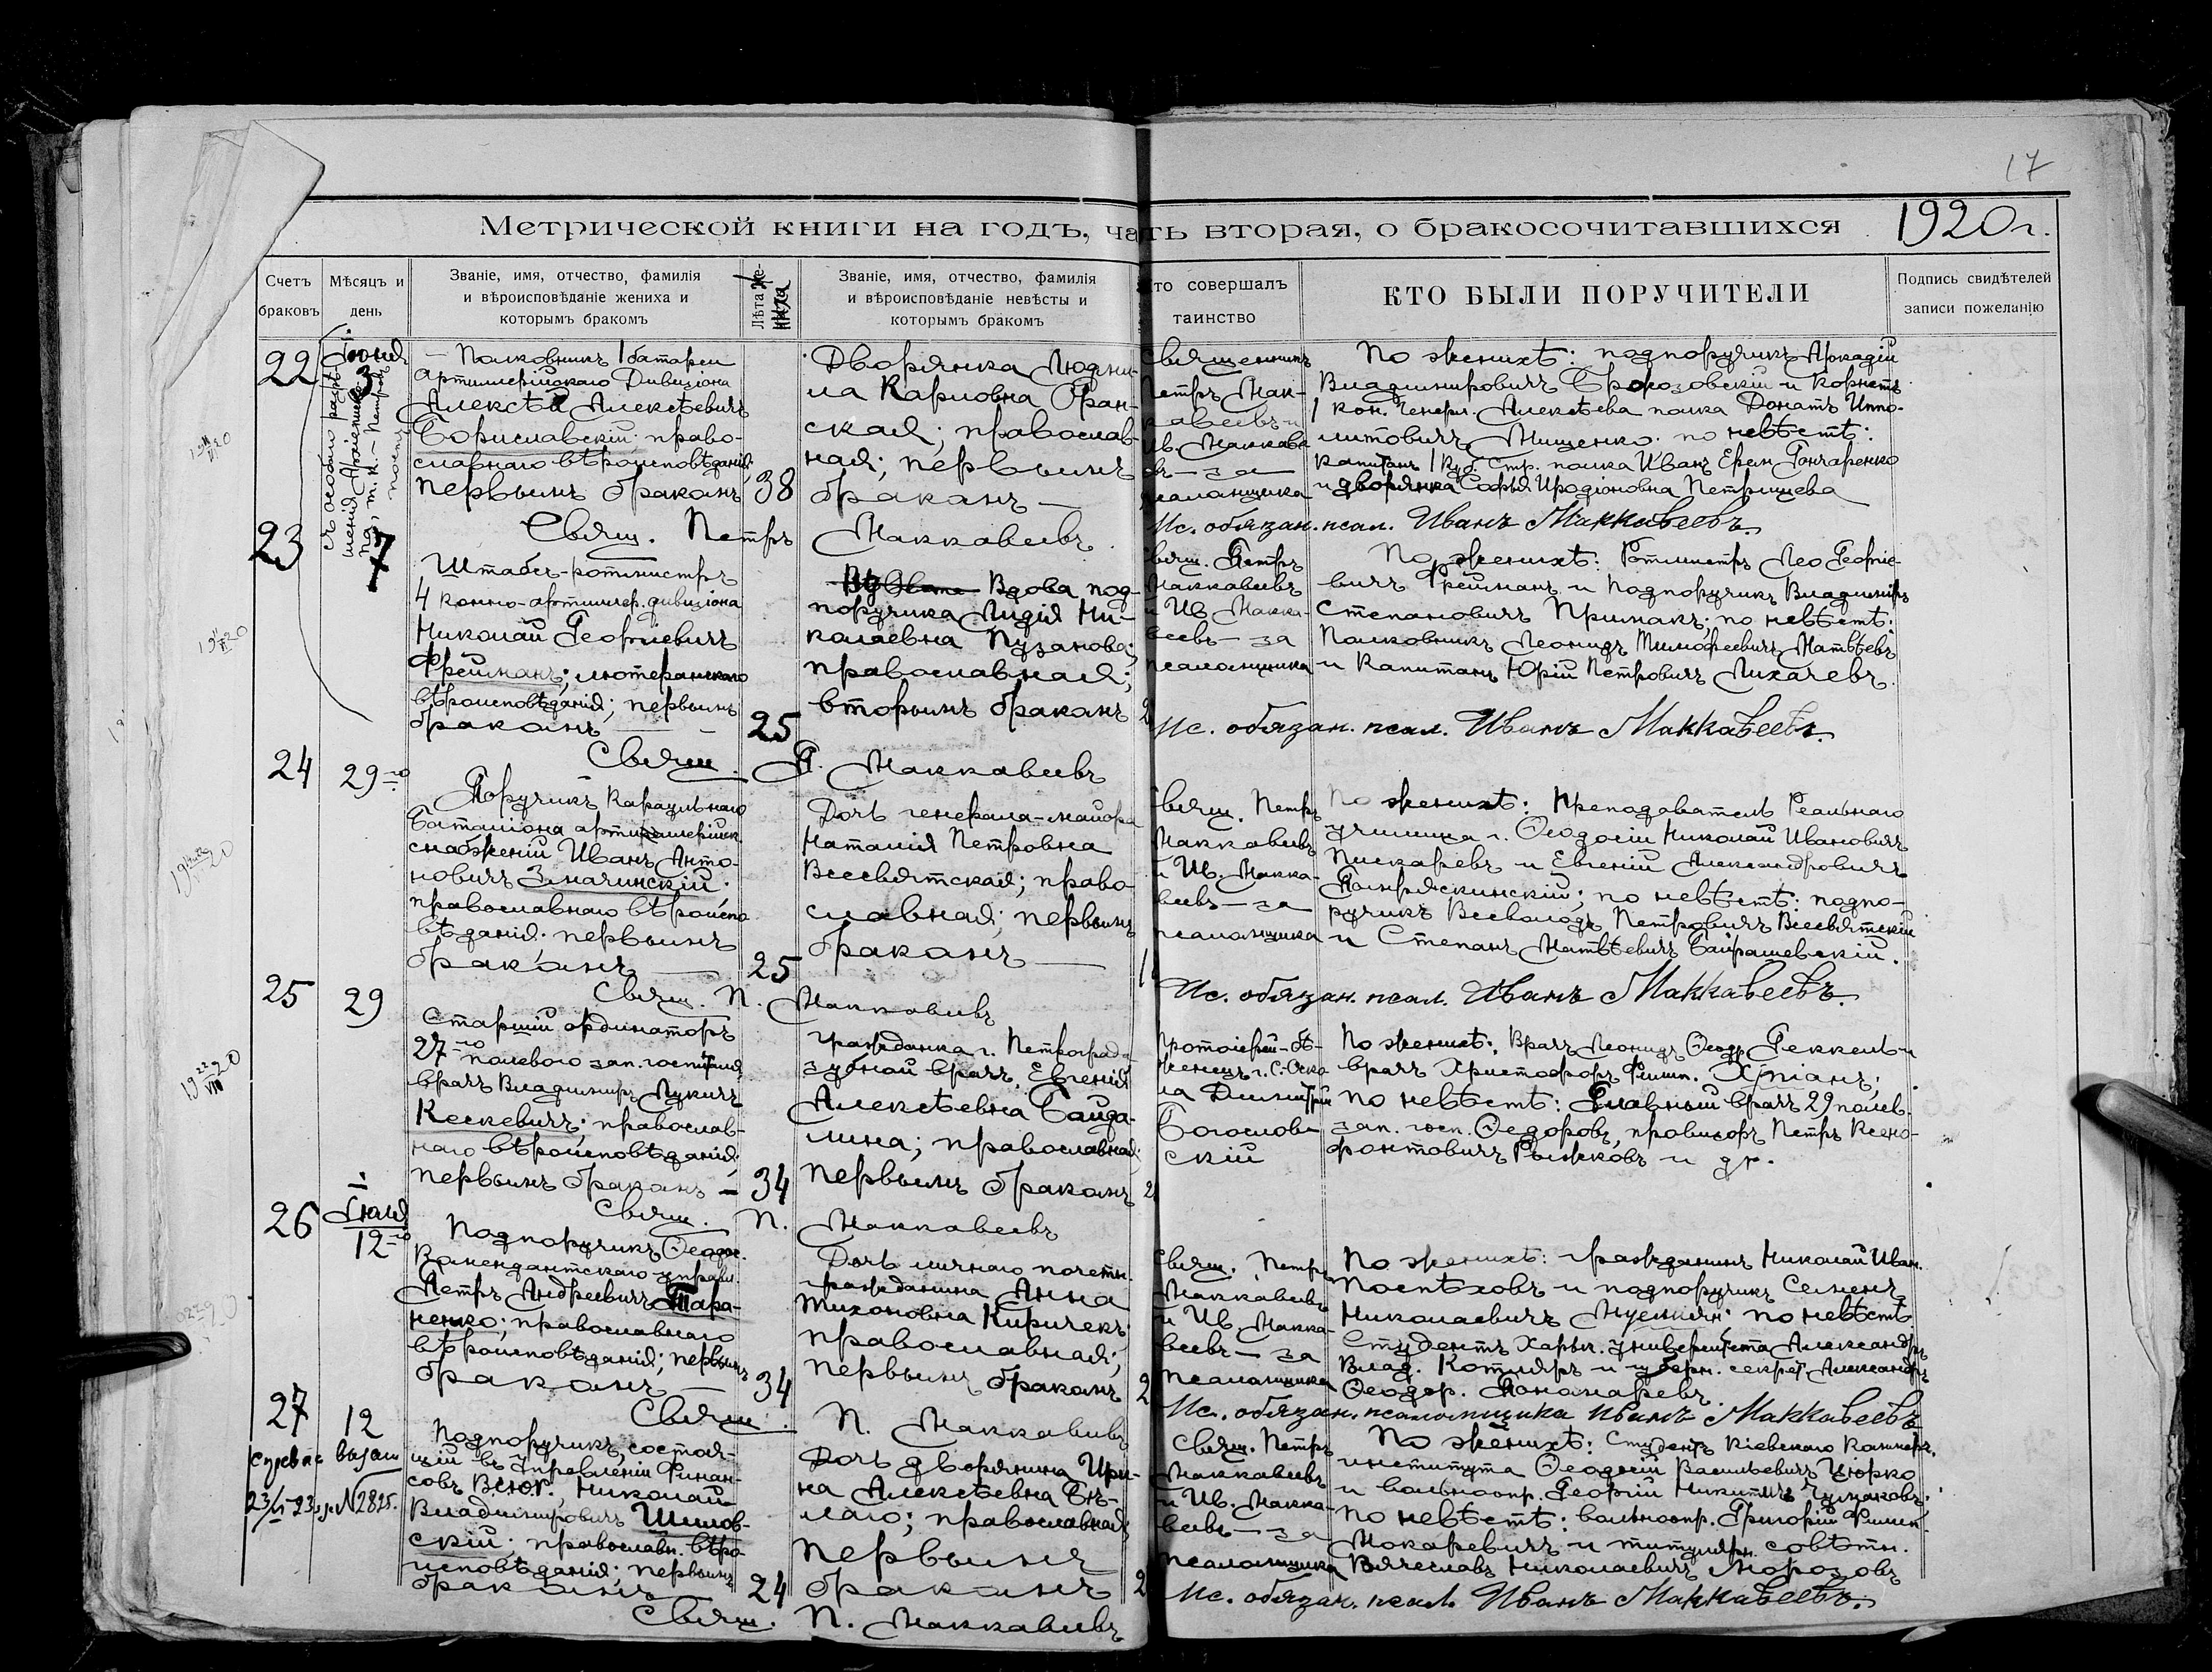 17
Метрической книги на годъ, часть вторая, о бракосочитавшихся 1920 г.
Счетъ браковъ
Мѣсяцъ и день
Званіе, имя, отчество, фамилія
и вѣроисповѣданіе жениха и
которымъ бракомъ
Лѣта жениха
Званіе, имя, отчество, фамилія
и вѣроисповѣданіе невѣсты и
которымъ бракомъ
то совершалъ
таинство
КТО БЫЛИ ПОРУЧИТЕЛИ
Подпись свидѣтелей
записи пожеланію
22
Іюня
3
съ особаго разрѣ-
шенія Архіепископа
т. к. - Петровъ
постъ
Полковникъ 1 батареи
Артиллерійскаго Дивизіона
Алексѣй Алексѣевичъ
Бориславскій; право-
славнаго вѣроисповѣданія;
первымъ бракомъ
38
Дворянка Людми-
ла Карловна Фран-
ская; православ-
ная; первымъ
бракомъ
Священникъ
Петръ Мак-
кавеевъ и
Ив. Маккаве-
въ - за
псаломщика
По женихѣ: подпоручикъ Аркадій
Владимировичъ Брозозовскій и Корнетъ
1 кон. Генерл. Алексѣева полка Донатъ Иппо-
литовичъ Мищенко; по невѣстѣ:
Капитанъ 1 Куб. Стр. полка Иванъ Ерем. Гончаренко
и дворянка Софья Иродіоновна Петрищева
Свящ. Петръ Маккавеевъ
Ис. обязан. псал. Иванъ Маккавеевъ.
23
7
Штабсъ-ротмистръ
4 конно-артиллер. дивизіона
Николай Георгіевичъ
Фрейманъ; лютеранскаго
вѣроисповѣданія; первымъ
бракомъ
25
Вдова под-
поручика Лидія Ни-
колаевна Пузанова;
православная;
вторымъ бракомъ
2
Свящ. Петръ
Маккавеевъ
и Ив. Макка-
веевъ - за
псаломщика
По женихѣ: Ротмистръ Лео Георгіе-
вичъ Фрейманъ и Подпоручикъ Владимиръ
Степановичъ Примакъ; по невѣстѣ:
Полковникъ Леонидъ Тимофеевичъ Матвѣевъ
и Капитанъ Юрій Петровичъ Лихачевъ.
Свящ. П. Маккавеевъ
Ис. обязан. псал. Иванъ Маккавеевъ.
24
29-го
Поручикъ Караульнаго
Баталіона артиллерійск
снабженій Иванъ Анто-
новичъ Змачинскій;
православнаго вѣроиспо
вѣданія; первымъ
бракомъ
25
Дочь генерала-майора
Наталія Петровна
Всесвятская; право-
славная; первымъ
бракомъ
1
Свящ. Петръ
Маккавеевъ
и Ив. Макка-
веевъ - за
псаломщика
По женихѣ: Преподаватель Реальнаго
училища г. Ѳеодосіи Николай Ивановичъ
Пискаревъ и Евгеній Александровичъ
по невѣстѣ: подпо-
ручикъ Всеволодъ Петровичъ Всесвятскій
и Степанъ Матвѣевичъ Байрашевскій.
Свящ. П. Маккавеевъ
Ис. обязан. псал. Иванъ Маккавеевъ.
25
29
Старшій ординаторъ
27-го полевого зап. госпиталя
врачъ Владимиръ Лукичъ
Кескевичъ; православ-
наго вѣроисповѣданія;
первымъ бракомъ
34
Гражданка г. Петрограда
зубной врачъ, Евгенія
Алексѣевна Байда-
лина; православная;
первымъ бракомъ
2
Протоіерей-бѣ-
женецъ г. С.-Оско
ла Димитрій
Богослов-
скій
По женихѣ: Врачъ Леонидъ Ѳеод. Геккель и
врачъ Христофоръ Филип. Хріанъ;
по невѣстѣ: Главный врачъ 29 полев.
зап. госп. Ѳедоровъ, провизоръ Петръ Ксено-
фонтовичъ Рыжковъ и др.
Свящ. П. Маккавеевъ
26
Іюля
12-го
Подпоручикъ Ѳеодос.
Комендантскаго управл.
Петръ Андреевичъ Тара-
ненко; православнаго
вѣроисповѣданія; первымъ
бракомъ
34
Дочь личнаго почетн.
гражданина Анна
Тихоновна Киричекъ;
православная;
первымъ бракомъ
2
Свящ. Петръ
Маккавеевъ
и Ив. Макка-
веевъ - за
псаломщика
По женихѣ: гражданинъ Николай Иван.
Поспѣховъ и подпоручикъ Семенъ
Николаевичъ по невѣстѣ
Студентъ Харьк. университета Александръ
Влад. Котляръ и губерн. секрет. Александръ
Ѳеодор. Пономаревъ.
Свящ. П. Маккавеевъ
Ис. обязан. псаломщика Иванъ Маккавеевъ
27
12
выдан
№ 2825.
Подпоручикъ, состоя-
щій въ Управленіи Финан-
совъ В.С.Ю.Г., Николай
Владимировичъ Шилов-
скій; православн. вѣро-
исповѣданія; первымъ
бракомъ
24
Дочь дворянина Ири-
на Алексѣевна Бѣ-
лаго; православная;
первымъ
бракомъ
2
Свящ. Петръ
Маккавеевъ
и Ив. Макка-
веевъ - за
псаломщика
По женихѣ: Студентъ Кіевскаго Коммерч.
института Ѳеодосій Васильевичъ Цюрко
и вольноопр. Георгій Никитичъ Чумаковъ;
по невѣстѣ: вольноопр. Григорій Филип.
Мокаревичъ и титулярн. совѣтн.
Вячеславъ Николаевичъ Морозовъ
Свящ. П. Маккавеевъ
Ис. обязан. псал. Иванъ Маккавеевъ.